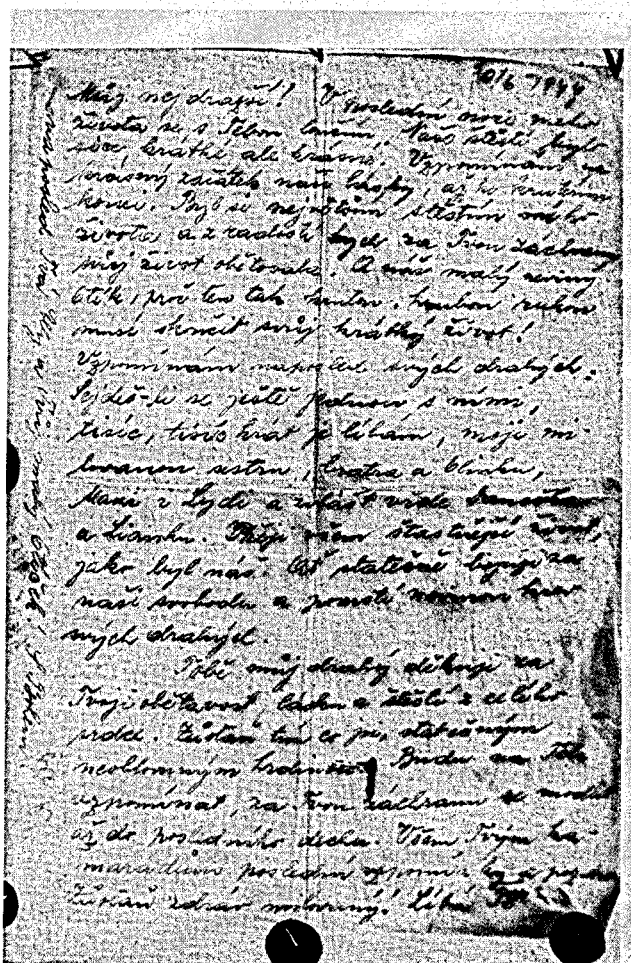 1944
Můj nejdražší! V poslední noci mého
života se s Tebou loučím. Naše štěstí bylo
sice krátké ale krásné. Vzpomínám na
krásný začátek naší lásky, až ku
konci. Byl jsi největším štěstím mého
života a z radostí bych za Tvou záchranu
svůj život obětovala. A náš malý nevinný
Otík, proč ten tak krutou rukou
musí skončit svůj krátký život!
Vzpomínám naposled svých drahých.
Sejdeš-li se ještě jednou s nimi,
tisíc, tisíc krát je líbám, moji mi-
lovanou sestru, bratra a
a zvlášť
a Lianku. Přeji všem šťastnější život,
jako byl náš. Ať statečně bojují za
naší svobodu a pomstí nevinnou krev
svých drahých.
Tobě můj drahý děkuji za
Tvoji obětavost lásku a štěstí z celého
srdce. Zůstaň tím co jsi, statečným
neoblomným hrdinou! Budu na Tebe
vzpomínat, za Tvou záchranu se modlit
až do posledního dechu. Všem Tvým ka-
marádům poslední vzpomínky a
Zůstaň zdráv milovaný! Líbá Tě
naposled Tvá a Tvůj malý Otíček!